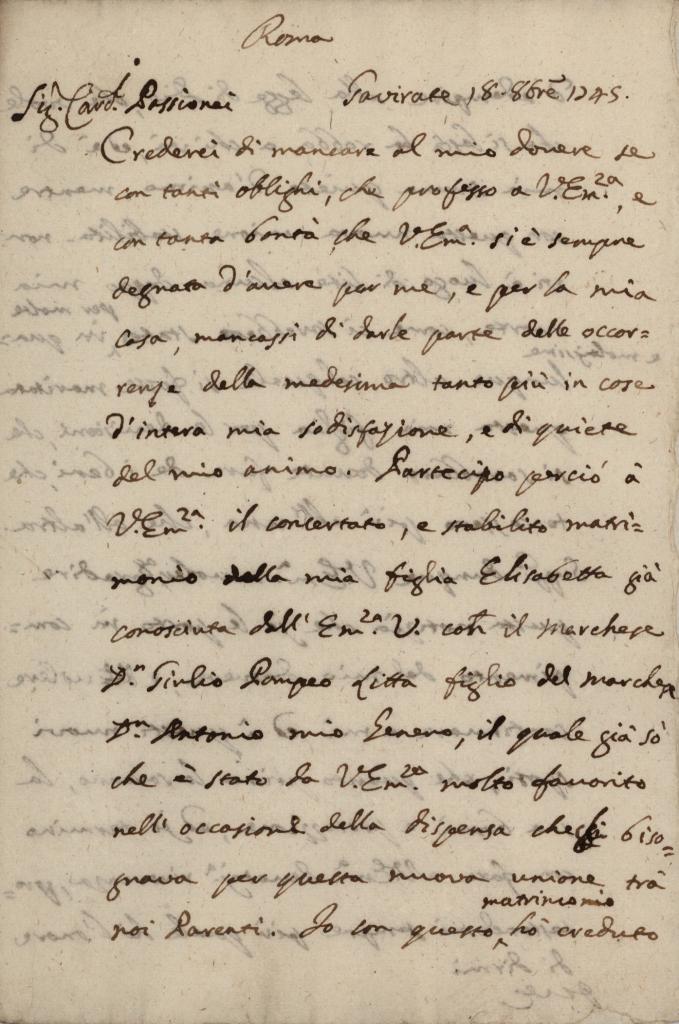 Roma
Sig.r Card.l Passionei Gavirate 18. 8bre 1745.
Crederei di mancare al mio dovere se
con tanti oblighi, che professo a V.Em.za, e
con tanta bontà che V.Em.a si è sempre
degnata d'avere per me, e per la mia
casa, mancassi di darle parte delle occor=
renze della medesima tanto più in cose
d'intera mia sodisfazione, e di quiete
del mio animo. Partecipo perciò à
V.Em.za il concertato, e stabilito matri=
monio della mia figlia Elisabetta già
conosciuta dall' Em.za V. con il Marchese
D.n Giulio Pompeo Litta figlio del Marchese
D.n Antonio mio Genero, il quale già sò
che è stato da V.Em.za molto favorito
nell' occasione della dispensa che biso=
gnava per questa nuova unione trà
matrimonio
noi Parenti. Io con questo hò creduto